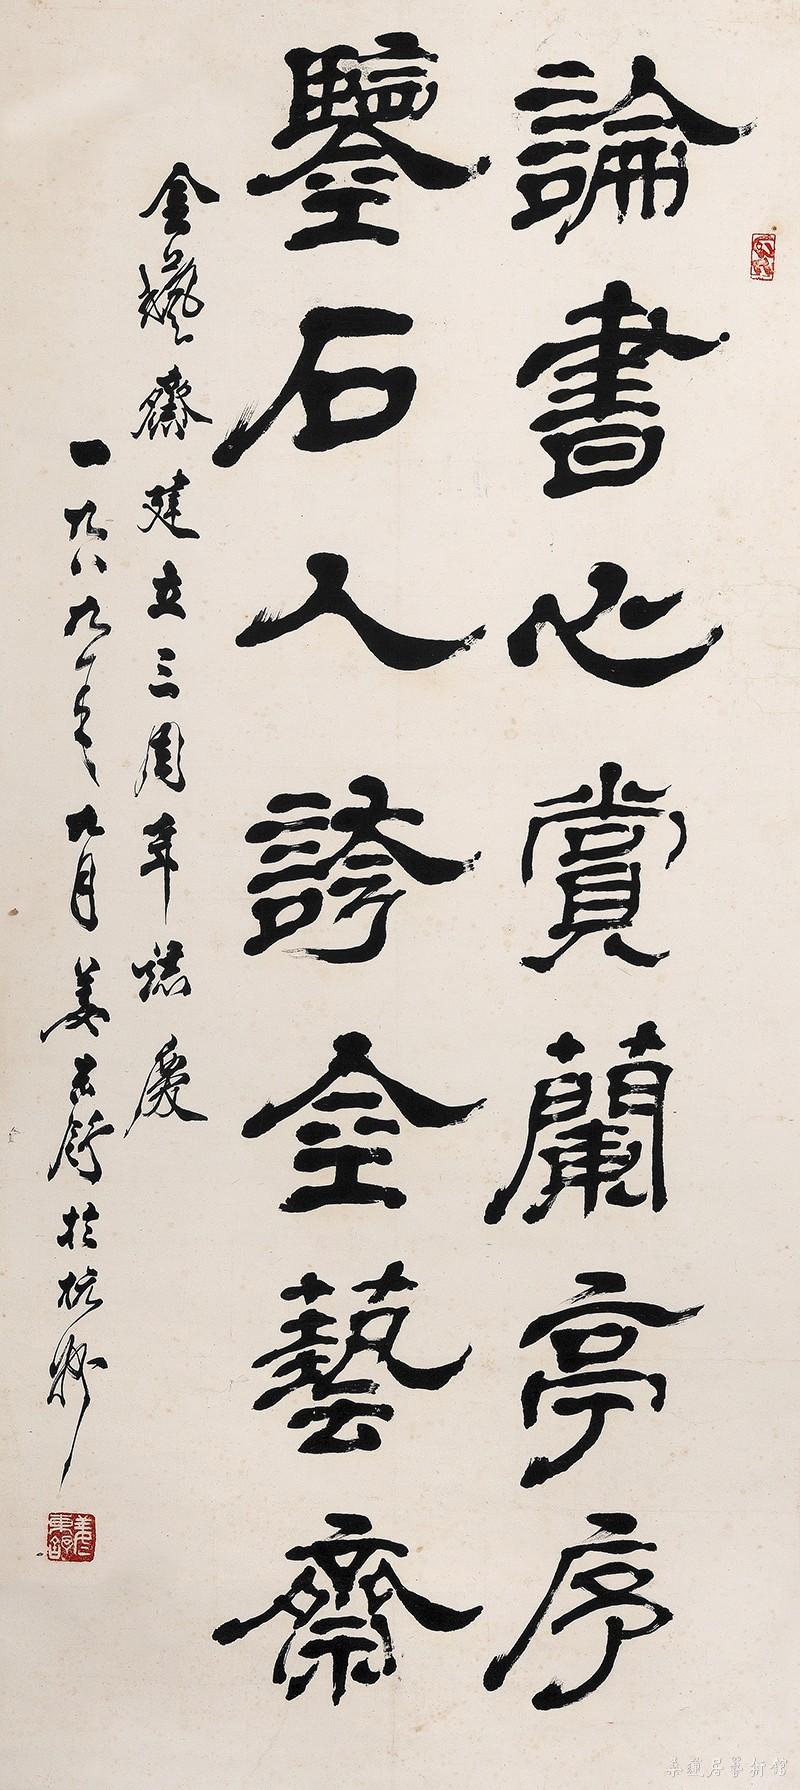 論書心賞蘭亭序
鑒石人誇金藝齋
金藝齋建立三周年誌慶
一九八九年九月姜东舒於杭州
桑蓮居藝術館